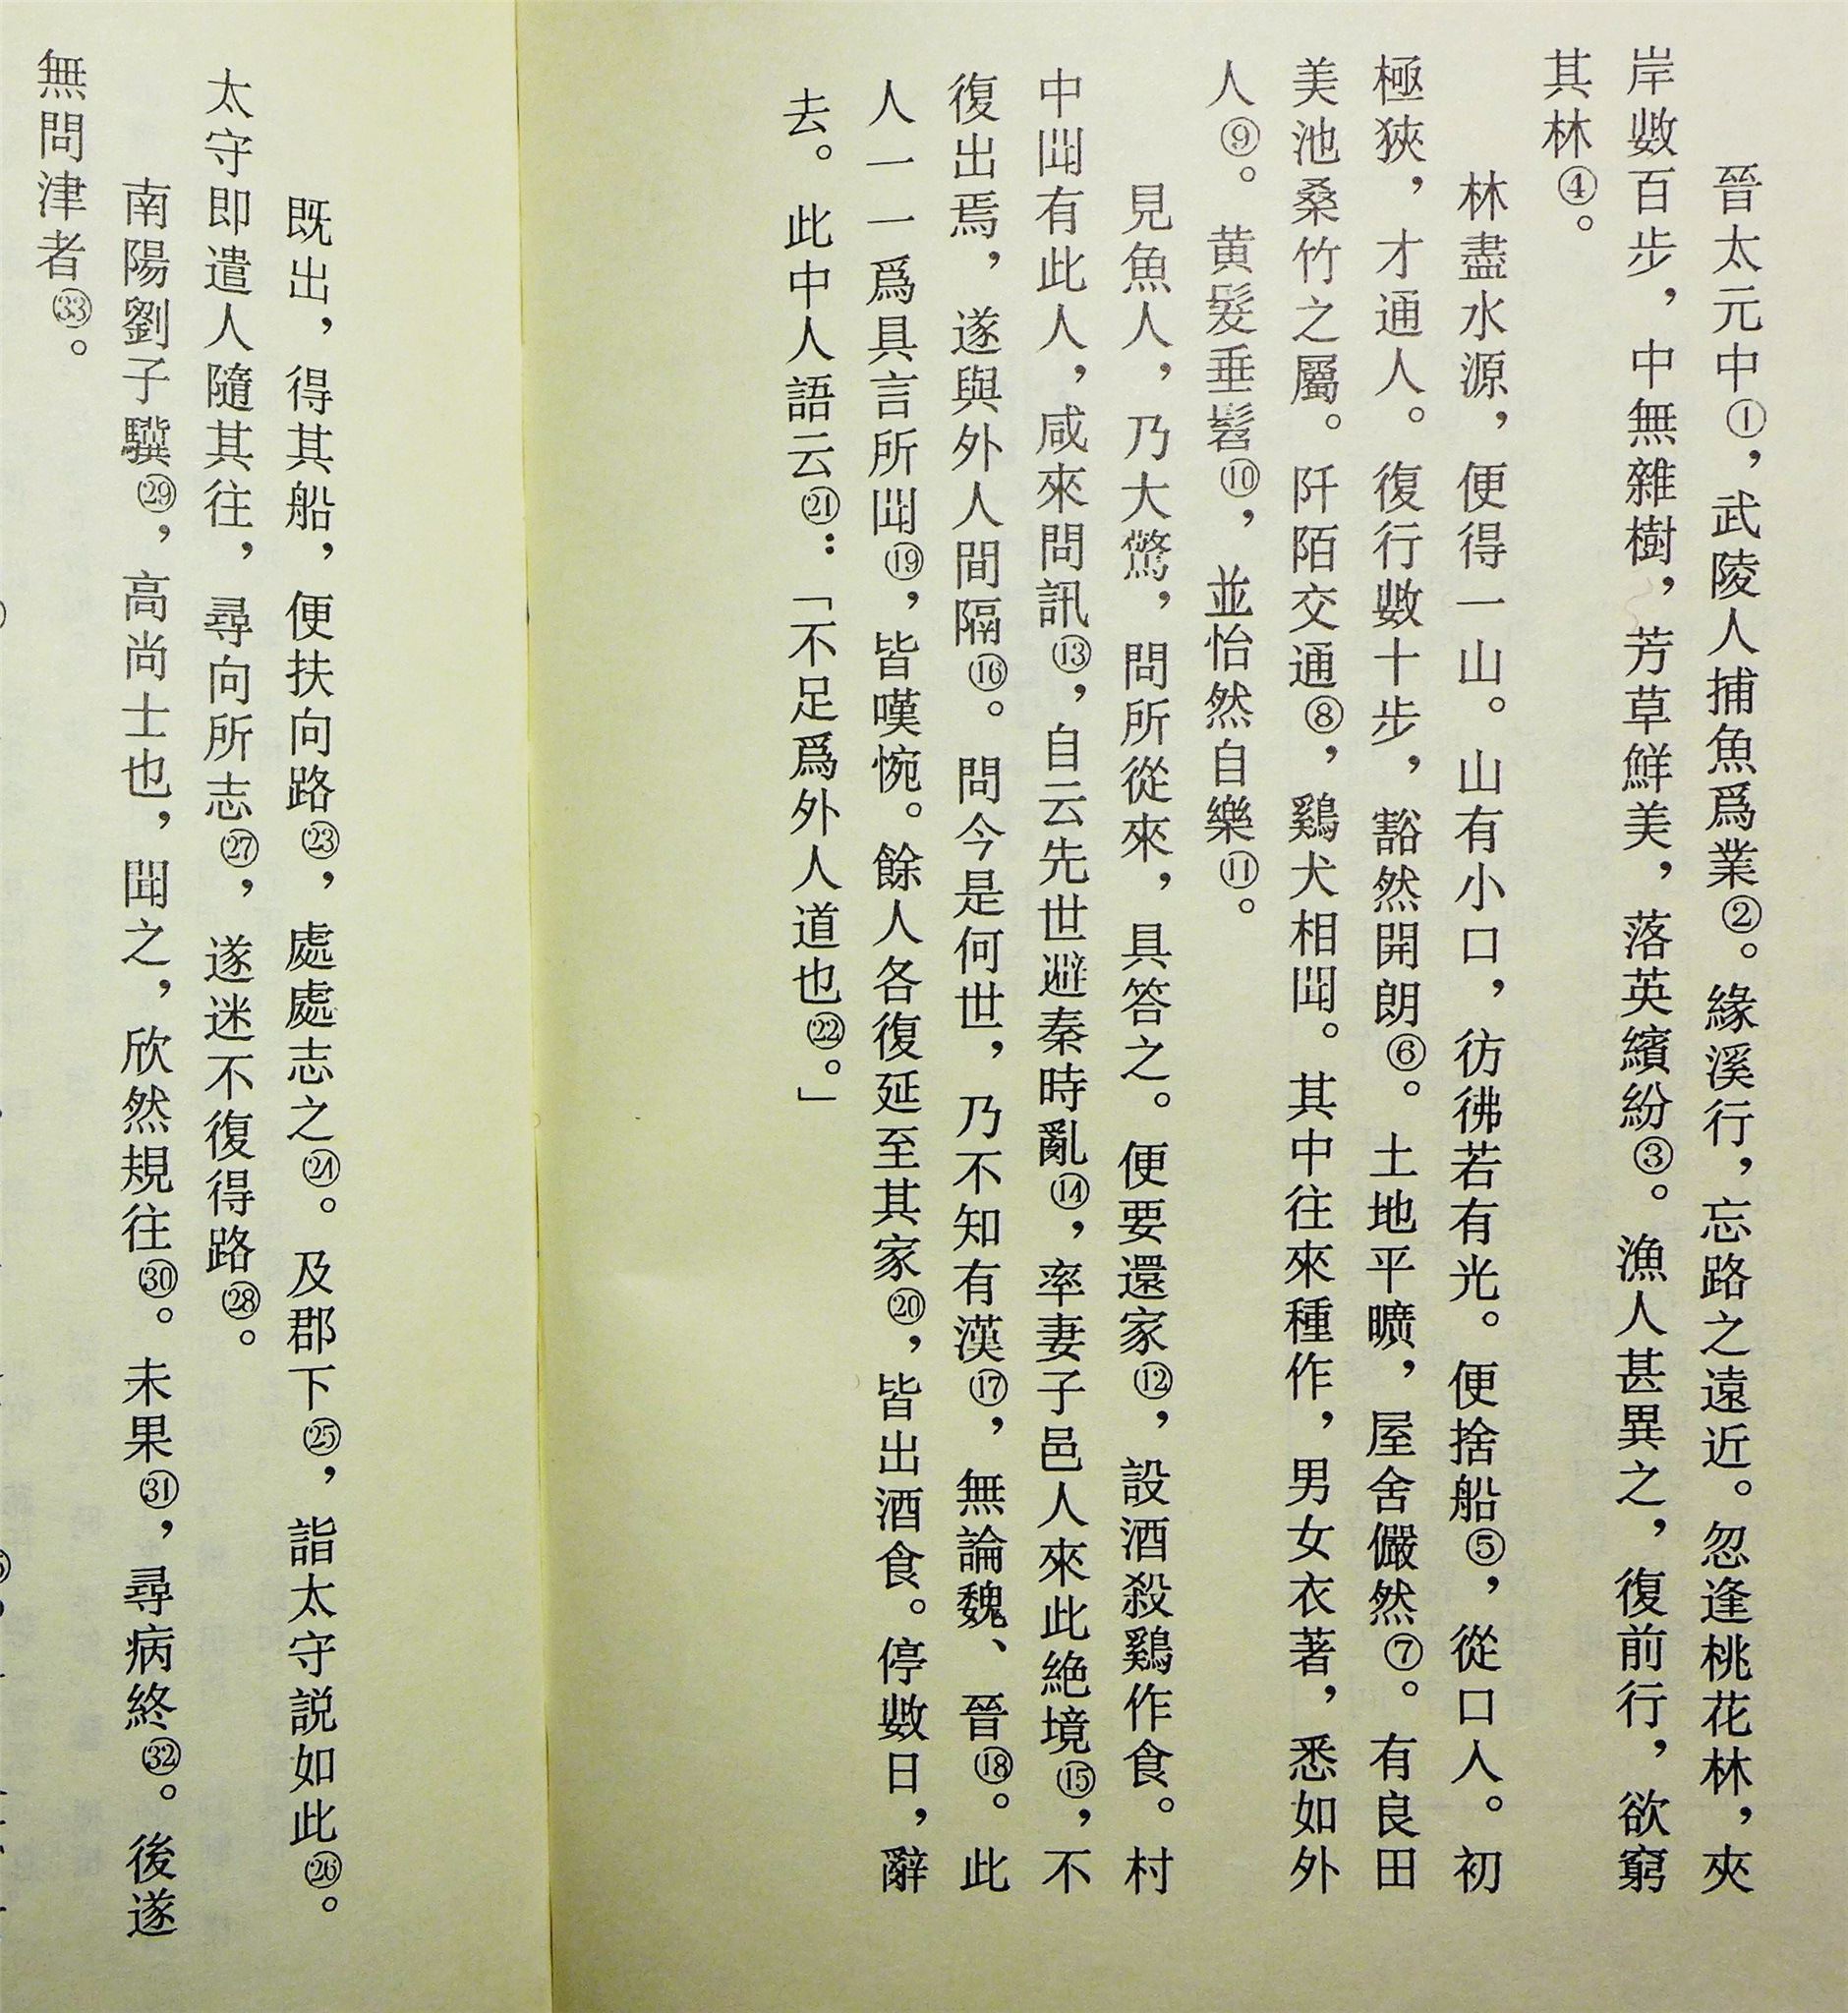 晉太元中①，武陵人捕魚爲業②。緣溪行，忘路之遠近。忽逢桃花林，夾
岸數百步，中無雜樹，芳草鮮美，落英繽紛③。漁人甚異之，復前行，欲窮
其林④。
林盡水源，便得一山。山有小口，彷彿若有光。便捨船⑤，從口入。初
極狹，才通人。復行數十步，豁然開朗⑥。土地平曠，屋舍儼然⑦。有良田
美池桑竹之屬。阡陌交通⑧，鷄犬相聞。其中往來種作，男女衣著，悉如外
人⑨。黄髮垂髫⑩，並怡然自樂⑪。
見魚人，乃大驚，問所從來，具答之。便要還家⑫，設酒殺鷄作食。村
中聞有此人，咸來問訊⑬，自云先世避秦時亂⑭，率妻子邑人來此絶境⑮，不
復出焉，遂與外人間隔⑯。問今是何世，乃不知有漢⑰，無論魏、晉⑱。此
人一一爲具言所聞⑲，皆嘆惋。餘人各復延至其家⑳，皆出酒食。停數日，辭
去。此中人語云㉑：「不足爲外人道也㉒。」
既出，得其船，便扶向路㉓，處處志之㉔。及郡下㉕，詣太守説如此㉖。
太守即遣人隨其往，尋向所志㉗，遂迷不復得路㉘。
南陽劉子驥㉙，高尚士也，聞之，欣然規往㉚。未果㉛，尋病終㉜。後遂
無問津者㉝。